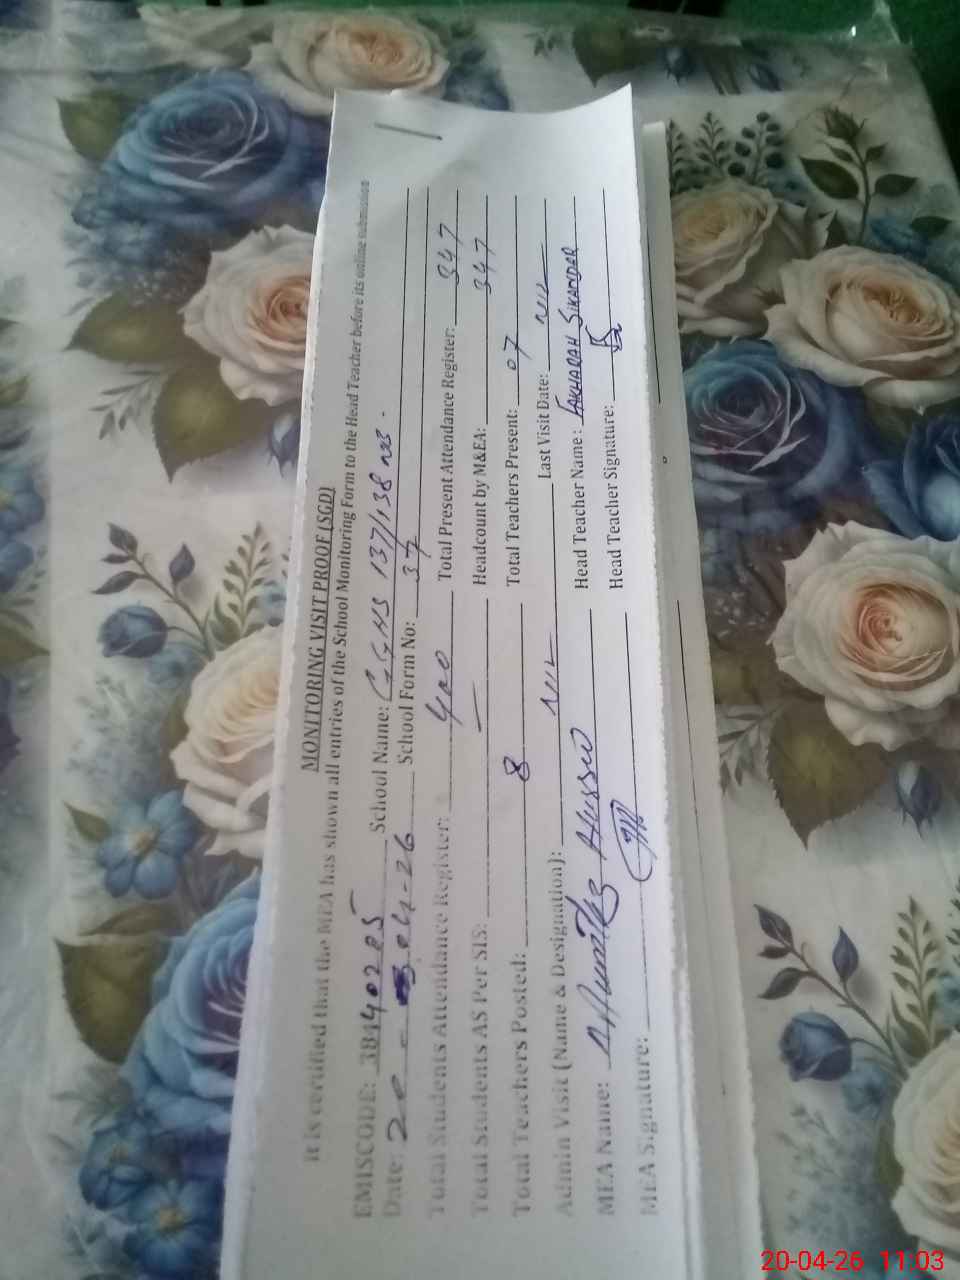 MONITORING VISIT PROOF (SGD)
It is certified that the MEA has shown all entries of the School Monitoring Form to the Head Teacher before its online submission
EMISCODE: 38140285 School Name: GGHS 137/138 NB.
Date: 20-04-26 School Form No: 37
Total Students Attendance Register: 400 Total Present Attendance Register: 347
Total Students AS Per SIS: — Headcount by M&EA: 347
Total Teachers Posted: 8 Total Teachers Present: 07
Admin Visit (Name & Designation): NIL Last Visit Date: NIL
MEA Name: Hussain Head Teacher Name: FAKHARAH SIKANDAR
MEA Signature: Head Teacher Signature:
20-04-26 11:03